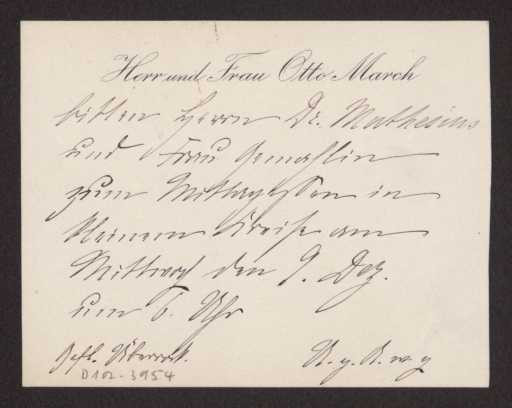 Herr und Frau Otto March
bitten Herrn Dr. Mathesius
und Frau Gemahlin
zum Mittagessen in
kleinem Kreise am
Mittwoch den 9. Dez.
um 6. Uhr
Gefl. Überrock.
U. A. w. g
D 102-3954